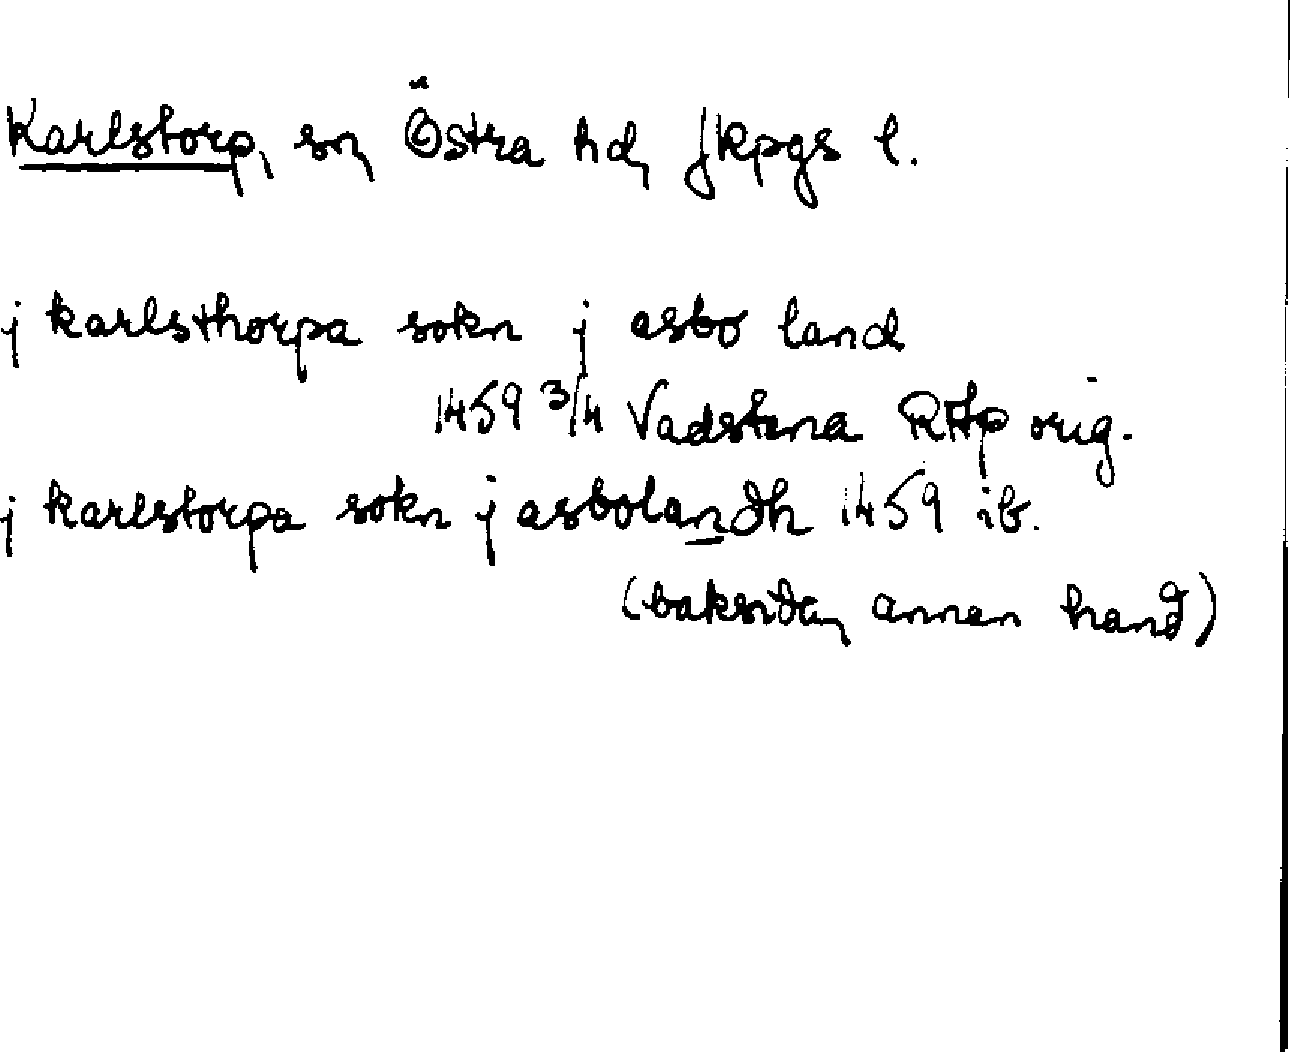 Karlstorp, sn, Östra hd, Jkpgs l.
j karlsthorpa sokn j asbo land
1459 3/4 Vadstena RAp orig.
j karlstorpa sokn j asbolandh 1459 ib.
(baksidan, annan hand)